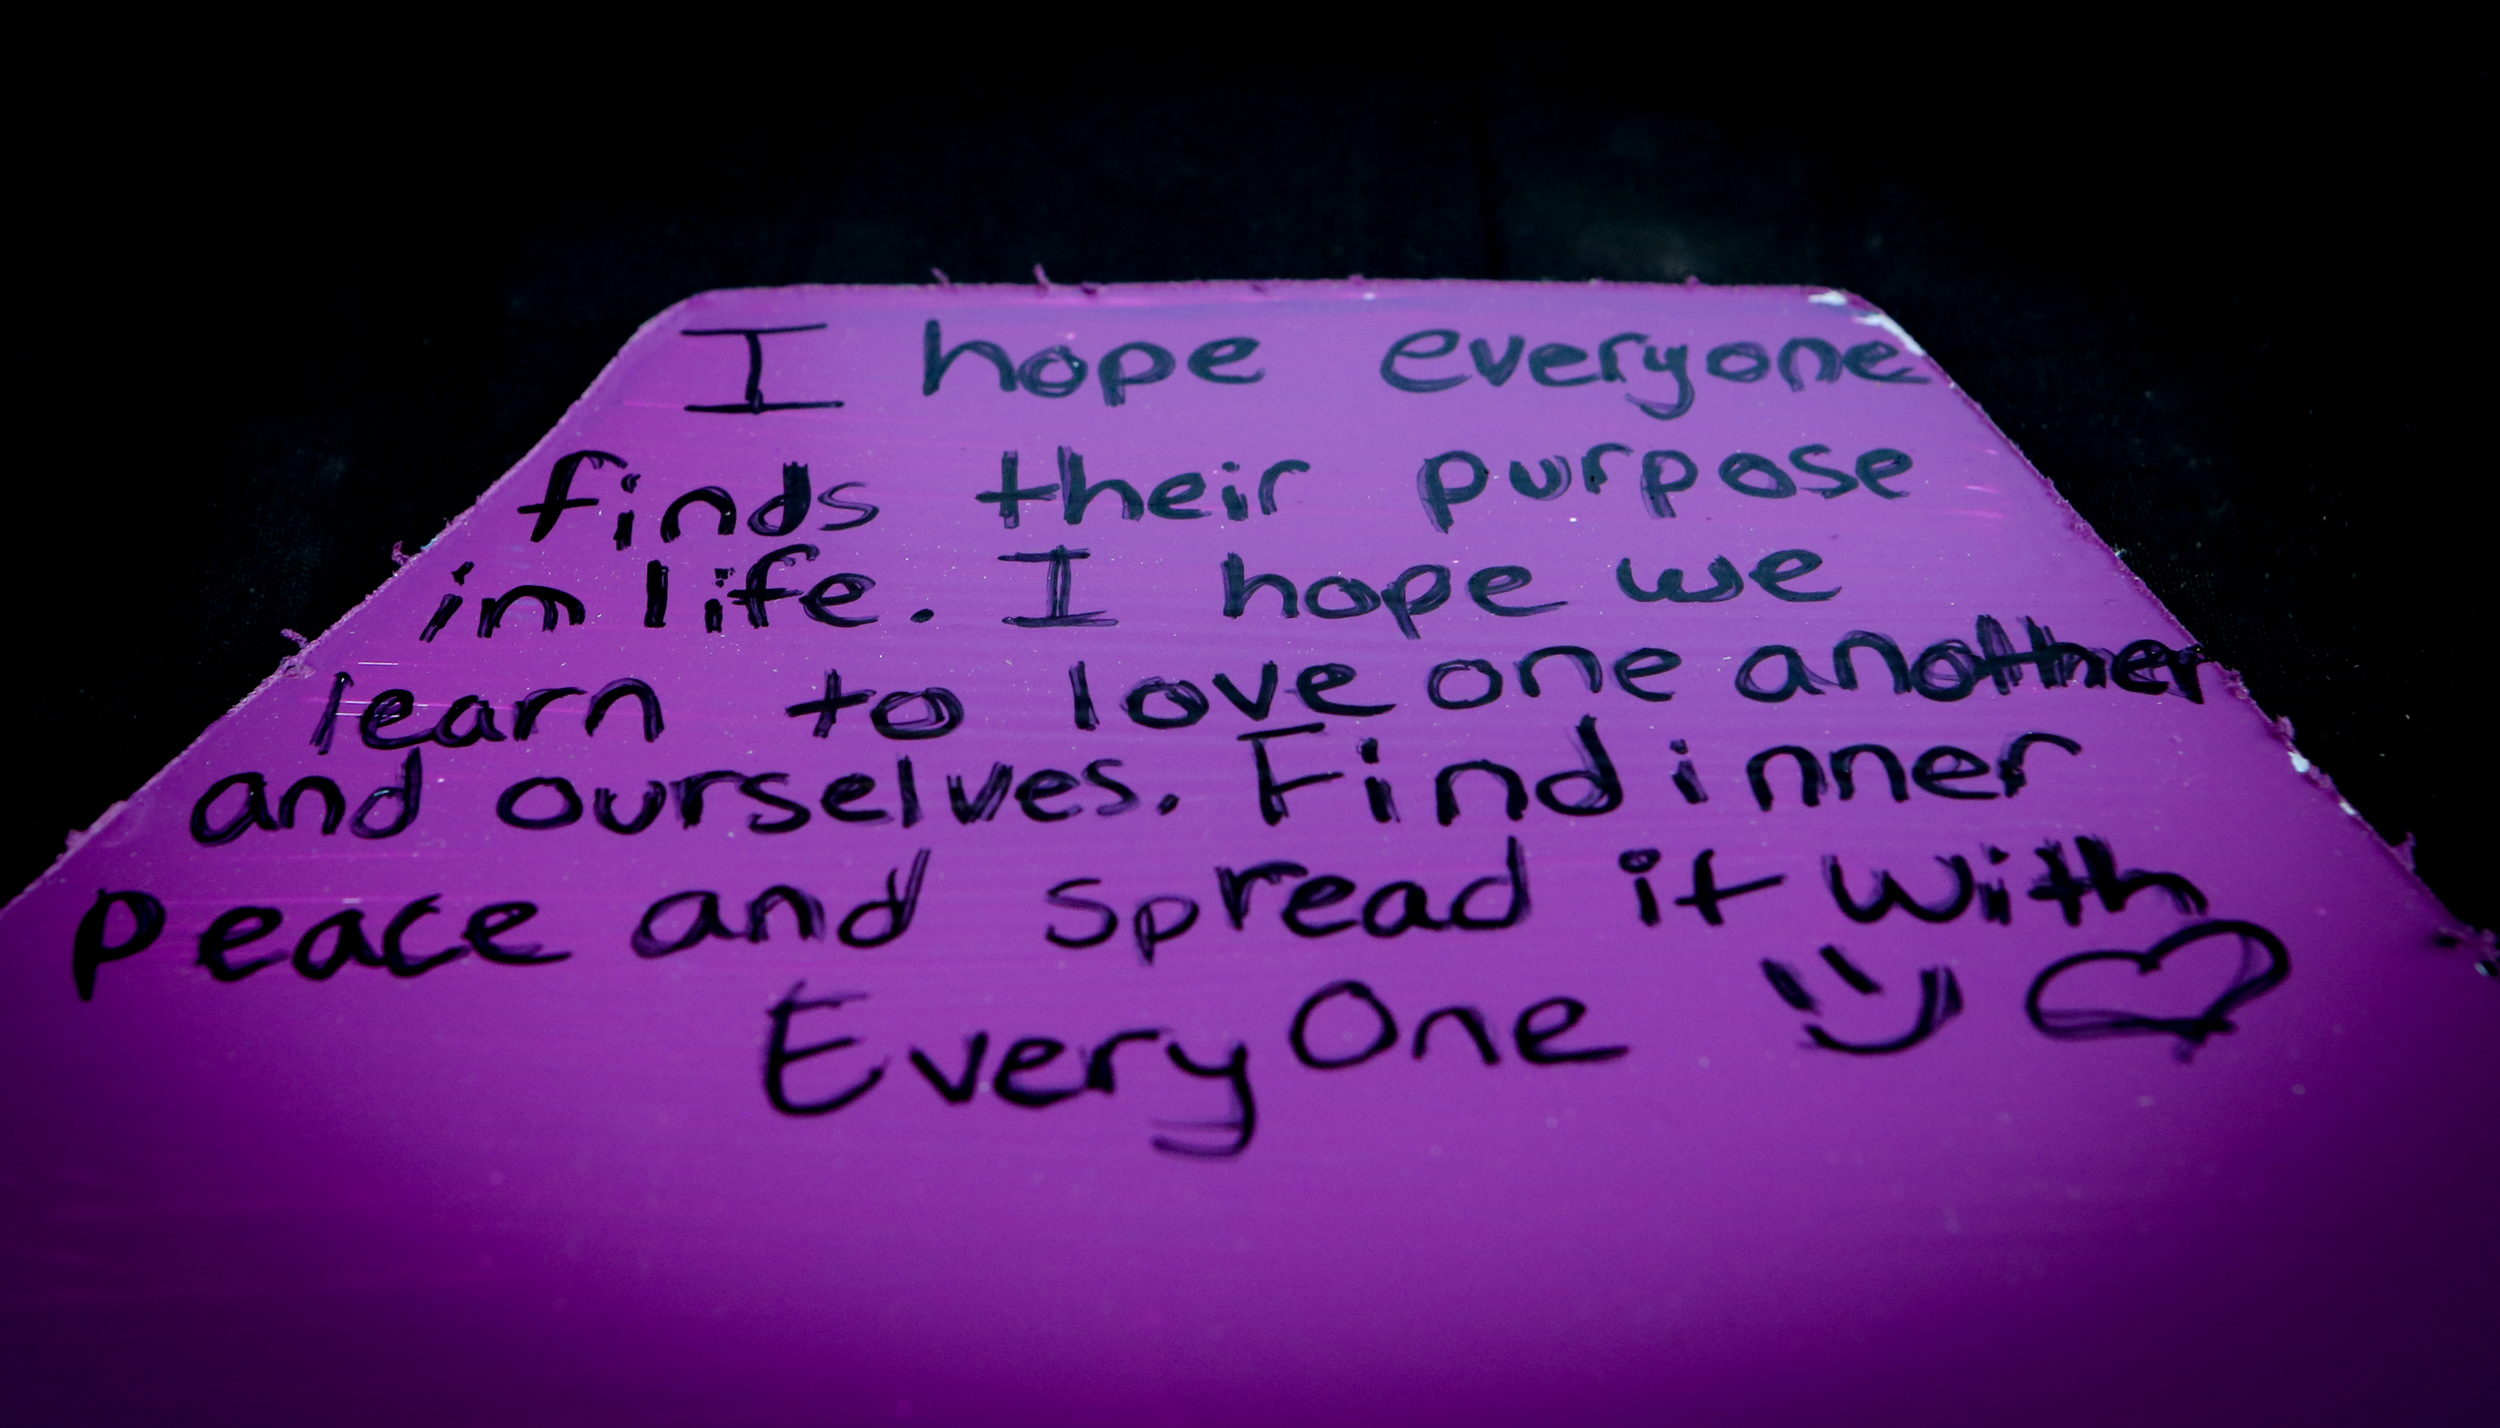 I hope everyone
finds their purpose
in life. I hope we
learn to love one another
and ourselves. Find inner
Peace and spread it With
EveryOne